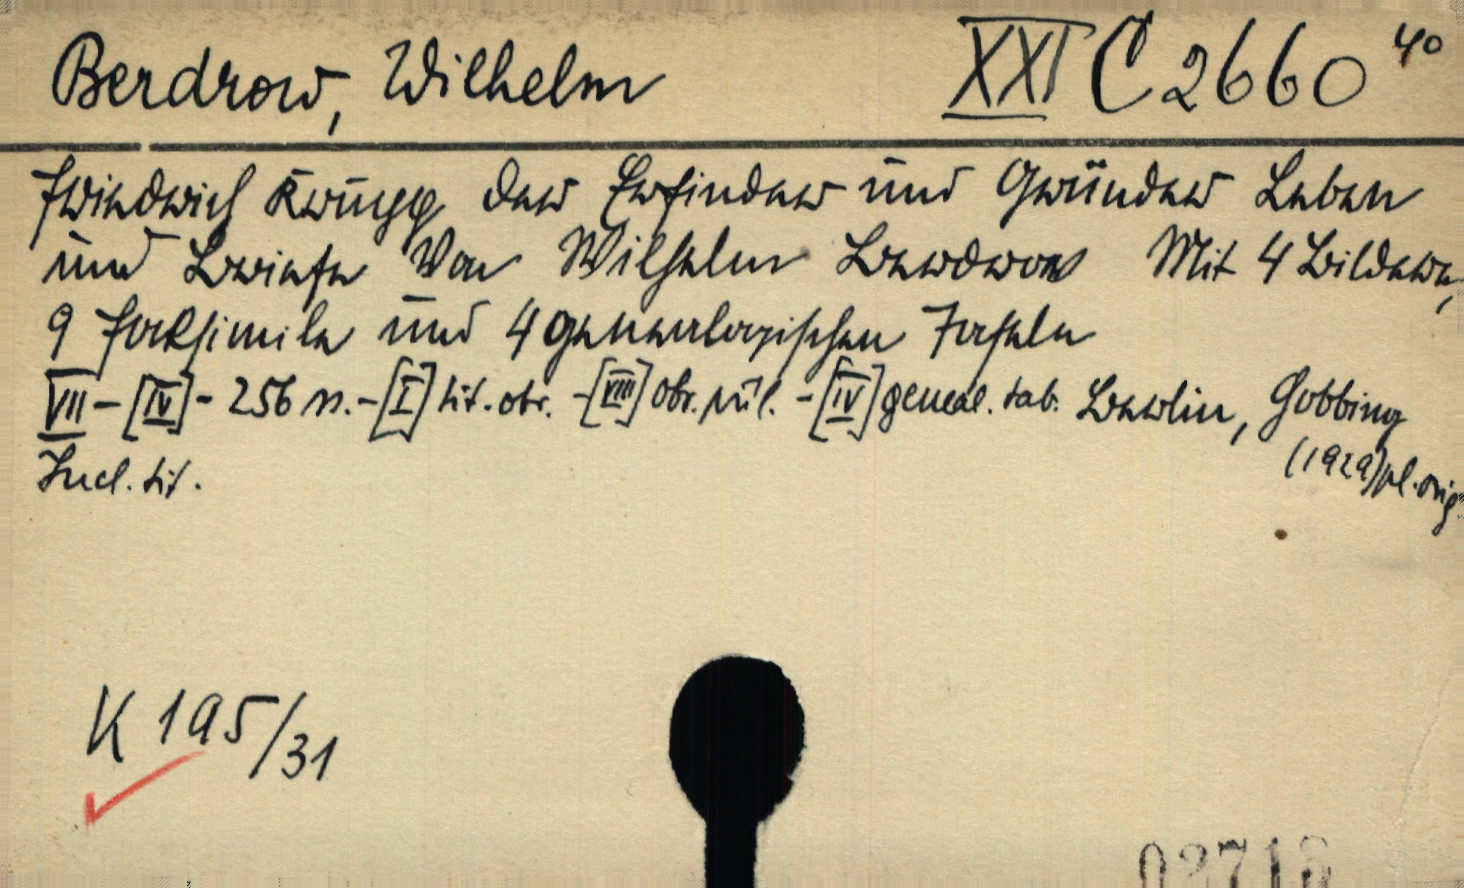 Berdrow, Wilhelm XXI C 2660 4o
Friedrich Krupp der Erfinder und Gründer Leben
und Briefe Von Wilhelm Berdrow Mit 4 Bildern,
9 Faksimile und 4 genealogischen Tafeln
VII-[IV]- 256 n.-[I] tit. obr. -[VIII] obr. příl. -[IV] geneal. tab. Berlin, Hobbing
(1929) pl. orig.
Incl. tit.
K 195/31